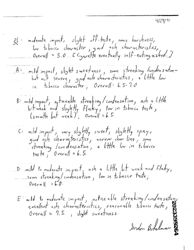 B: moderate impact, slight off-taste, very harshness,
low tobacco character, good ash characteristics,
Overall = 5.0 (Cigarette eventually self-extinguished)
A: mild impact, slight sweetness, some streaking/condensation
but not severe, good ash characteristics, a little low
in tobacco character, Overall = 6.5-7.0
B: mild impact, noticeable streaking/condensation, ash a little
bit weak and slightly flakey, low in tobacco taste,
(smooth but weak), Overall = 6.5
C: mild impact, very slightly sweet, slightly
good ash characteristics, some
streaking/condensation, a little low in tobacco
taste, Overall = 6.5
D: mild to moderate impact, ash a little bit weak and flakey,
some streaking/condensation, low in tobacco taste,
Overall = 6.0
E: mild to moderate impact, noticeable streaking/condensation,
good ash characteristics, reasonable tobacco taste,
Overall = 7.5, slight sweetness